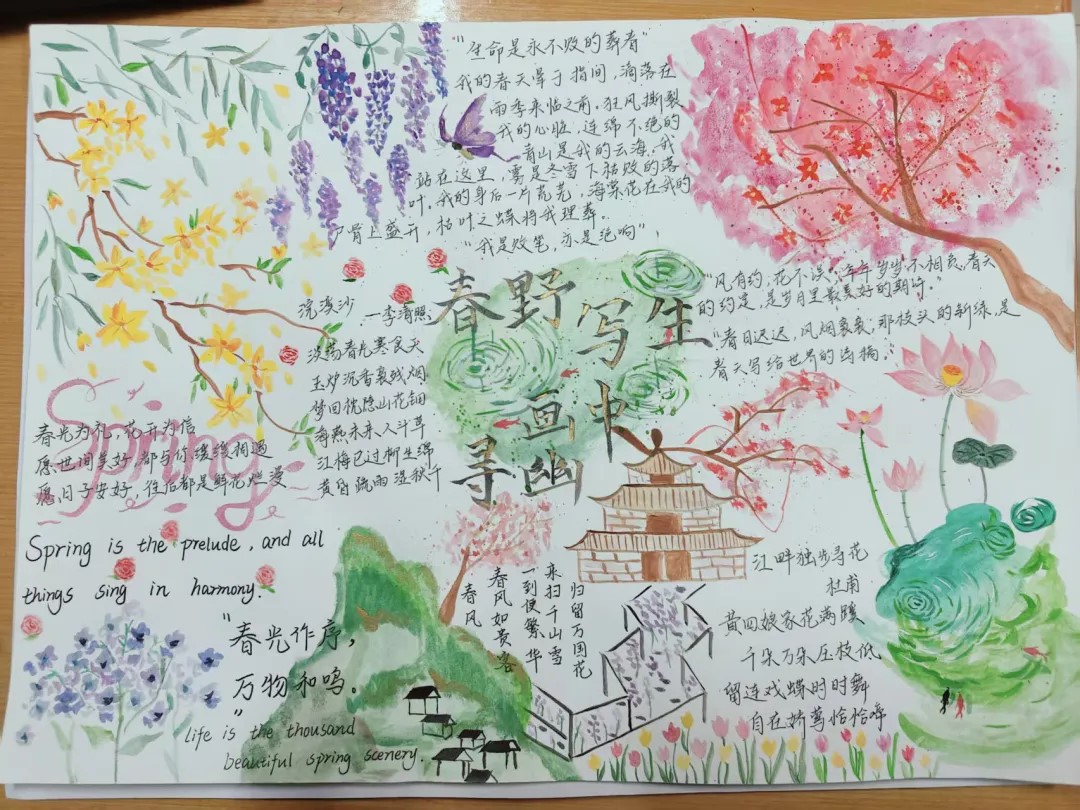 "生命是永不败的葬者"
我的春天晕于指间,滴落在
雨季来临之前,狂风撕裂
我的心脏,连绵不绝的
青山是我的云海,我
站在这里,雾是冬雪下枯败的落
叶,我的身后一片荒芜,海棠花在我的
尸骨上盛开,枯叶之蝶将我埋葬。
"我是败笔,亦是绝响"
春野写生
画中
寻幽
"风有约,花不误,年年岁岁不相负,春天
的约定,是岁月里最美好的期许。"
"春日迟迟,风烟袅袅,那枝头的新绿,是
春天写给世界的诗稿。"
浣溪沙
—李清照
淡荡春光寒食天
玉炉沉香袅残烟
梦回枕隐山花钿
海燕未来人斗草
江梅已过柳生绵
黄昏疏雨湿秋千
Spring
春光为礼,花开为信
愿世间美好,都与你缓缓相遇
愿日子安好,往后都是鲜花烂漫
Spring is the prelude, and all
things sing in harmony.
"春光作序,
万物和鸣。"
life is the thousand
beautiful spring scenery.
春风
春风如贵客
一到便繁华
来扫千山雪
归留万国花
江畔独步寻花
杜甫
黄四娘家花满蹊
千朵万朵压枝低
留连戏蝶时时舞
自在娇莺恰恰啼